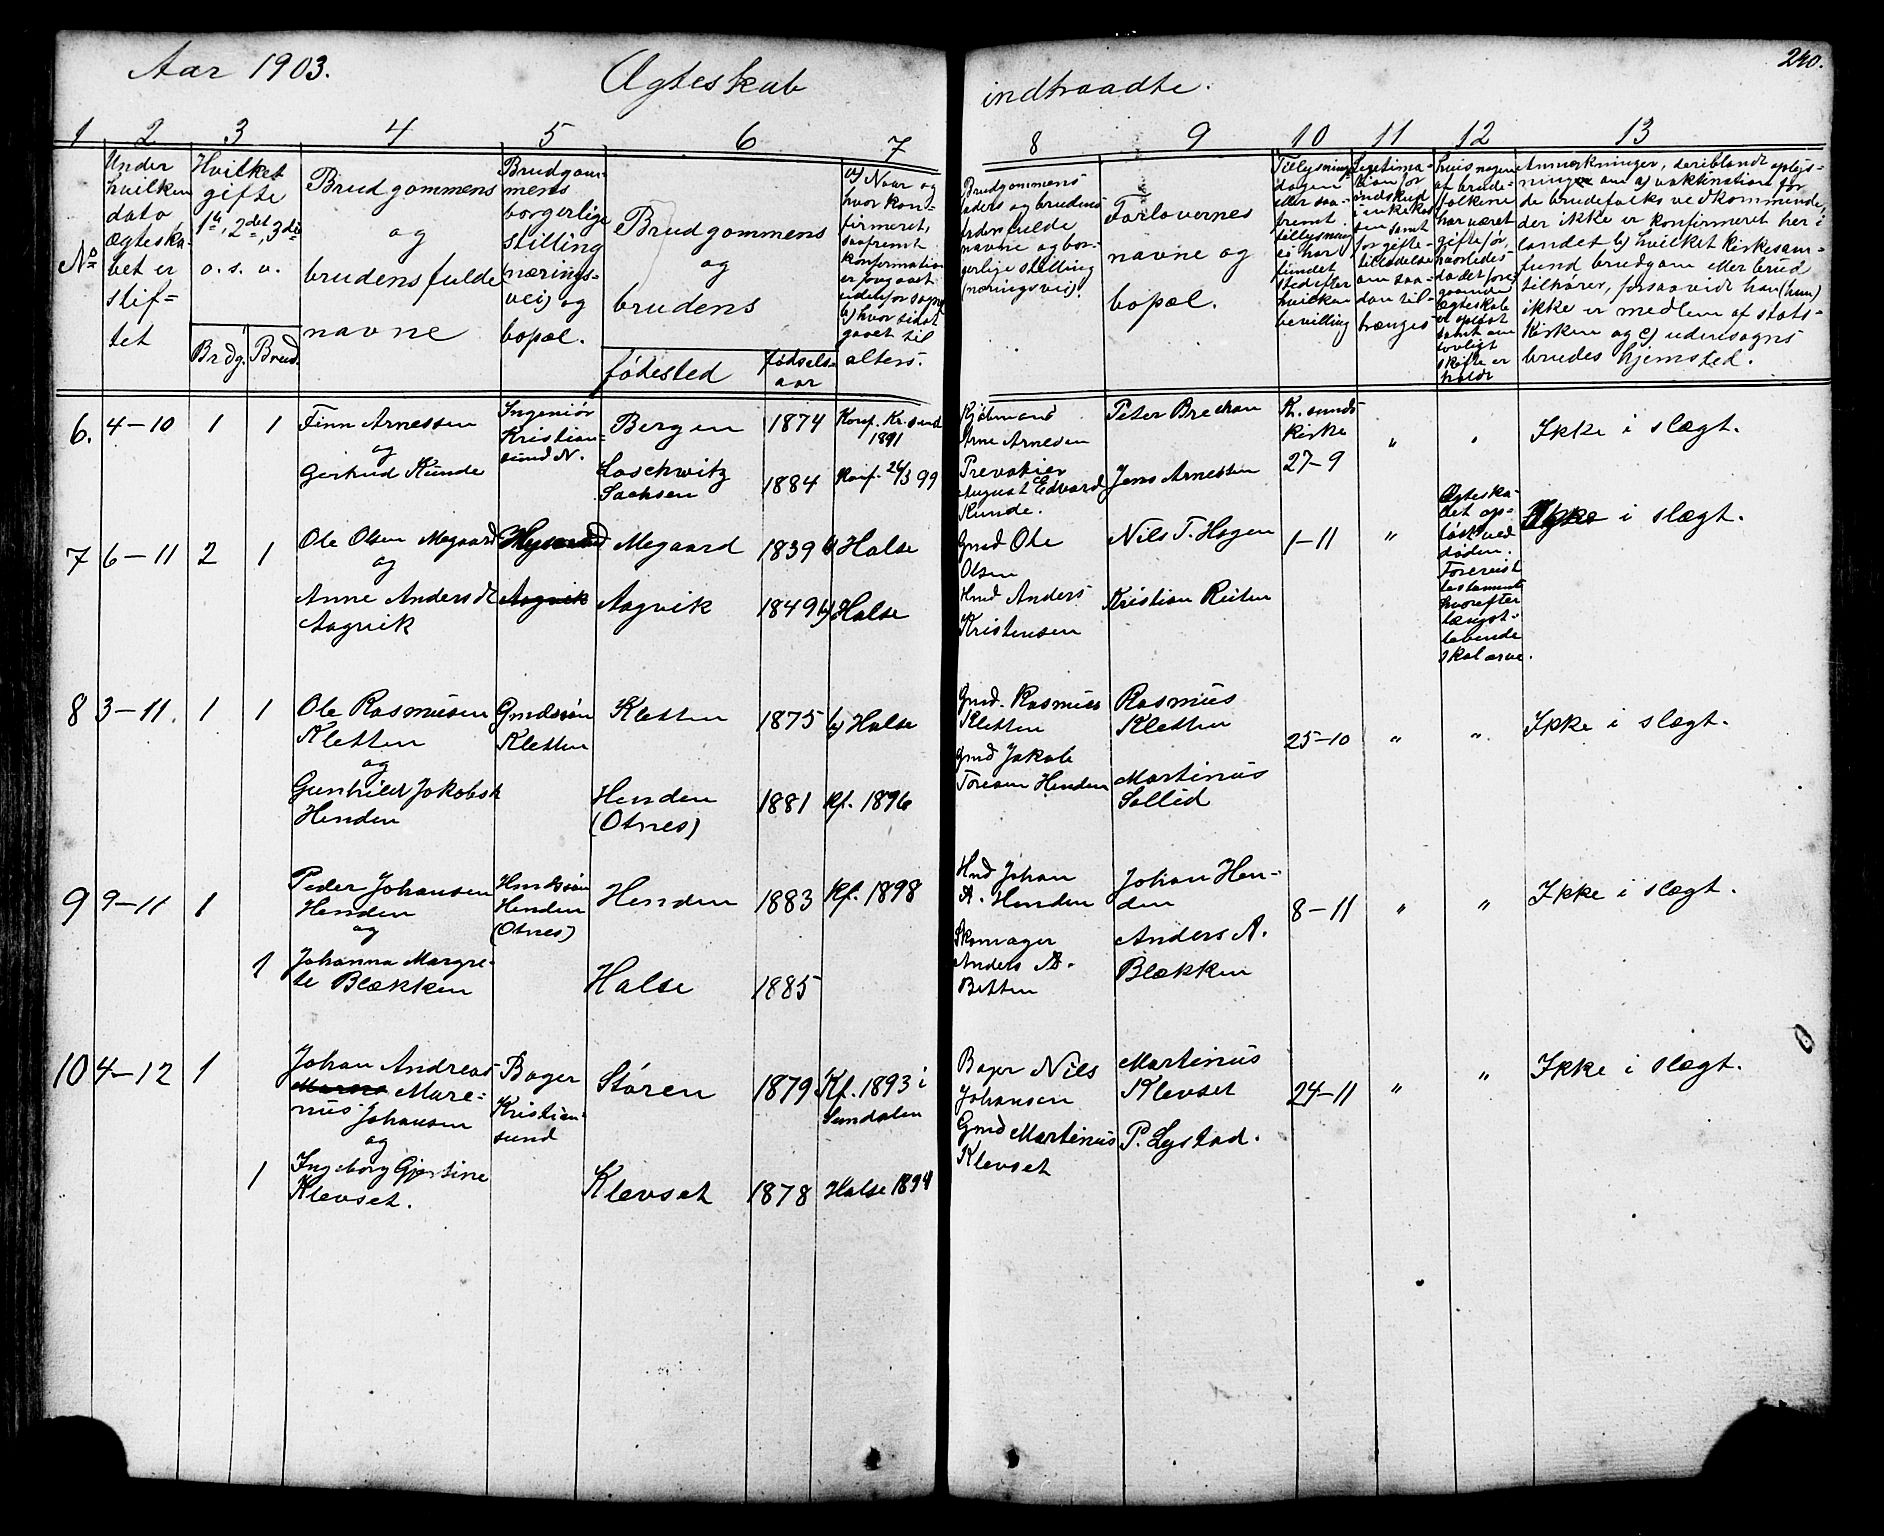 Aar 1903.
Ægteskab
indtraadte.
240.
1 2 3 4 5 6 7 8 9 10 11 12 13
No
Under
hvilken
dato
ægteska-
bet er
stif-
tet
Hvilket
gifte
1ste, 2det, 3die
o. s. v.
Brdg. Brud.
Brudgommens
og
brudens fulde
navne
Brudgom-
mens
borgerlige
stilling
nærings-
vei) og
bopæl.
Brudgommens
og
brudens
fødested
fødsels-
aar
a) Naar og
hvor kon-
firmeret,
saafremt
konfirmation
er foregaaet
udenfor sognet
b) hvor sidst
gaaet til
alters.
Brudgommens
faders og brudens
faders fulde
navne og bor-
gerlige stilling
(næringsvei).
Forlovernes
navne og
bopæl.
Tillysnings-
dagen
eller saa-
fremt
tillysning
ei har
fundet
sted efter
hvilken
bevilling
Legitima-
tion for
indskud
i enkekas-
sen samt
for gifte-
tilladelse
om saa-
dan til-
trænges
hvis nogen
af brude-
folkene
har været
gifte før,
hvorledes
da det fore-
gaaende
ægteskab
er opløst
samt om
lovligt
skifte er
holdt
Anmerkninger, deriblandt oplys-
ninger om a) vaktination for
de brudefolks vedkommende,
der ikke er konfirmeret her i
landet b) hvilket kirkesam-
fund brudgom eller brud
tilhører, forsaavidt han (hun)
ikke er medlem af stats-
kirken og c) udensogns
brudes hjemsted.
6. 4-10 1 1
Finn Arnessen
og
Gertrud Kunde
Ingeniør
Kristian-
sund N.
Bergen 1874 Konf. Kr.sund
1891
Loschwitz
Sachsen 1884 Konf. 26/3 99
Kjøbmand
Arne Arnesen
Prevatier
August Edvard
Kunde.
Peter Brechan
Jens Arnessen
Kr. sunds
kirke
27-9
" "
Ikke i slægt.
7 6-11 2 1
Ole Olsen Megaard
og
Anne Andersdt
Aagvik
Aagvik
Megaard 1839 b) Halse
Aagvik 1849 b) Halse
Gmd Ole
Olsen
Hmd Anders
Kristensen
Nils T. Hagen
Kristian Reiten
1-11
"
Ægteska-
bet op-
løst ved
døden.
Forevist
testamente
hvorefter
længst-
levende
skal arve.
Ikke i slægt.
8 3-11. 1 1
Ole Rasmusen
Kletten
og
Gunhild Jakobsdt
Henden
Gmdssøn
Kletten
Kletten 1875 b) Halse
Henden
(Otnes) 1881 Kf. 1896
Gmd. Rasmus
Kletten
Gmd Jakob
Toresen Henden
Rasmus
Kletten
Martinus
Sollid
25-10
" "
Ikke i slægt.
9 9-11 1
Peder Johansen
Henden
og
1
Johanna Margre-
te Blækken
Hmdssøn
Henden
(Otnes)
Henden 1883 Kf. 1898
Halse 1885
Hmd Johan
A. Henden
Skomager
Anders A.
Betten
Johan Hen-
den
Anders A.
Blækken
8-11
" "
Ikke i slægt.
10 4-12 1
Johan Andreas
Mare-
nus Johansen
og
1
Ingeborg Gjertine
Klevset.
Bager
Kristian-
sund
Støren 1879 Kf. 1893 i
Sundalen
Klevset 1878 Halse 1894
Bager Nils
Johansen
Gmd Martinus
Klevset
Martinus
Klevset
P. Lystad.
24-11
" "
Ikke i slægt.